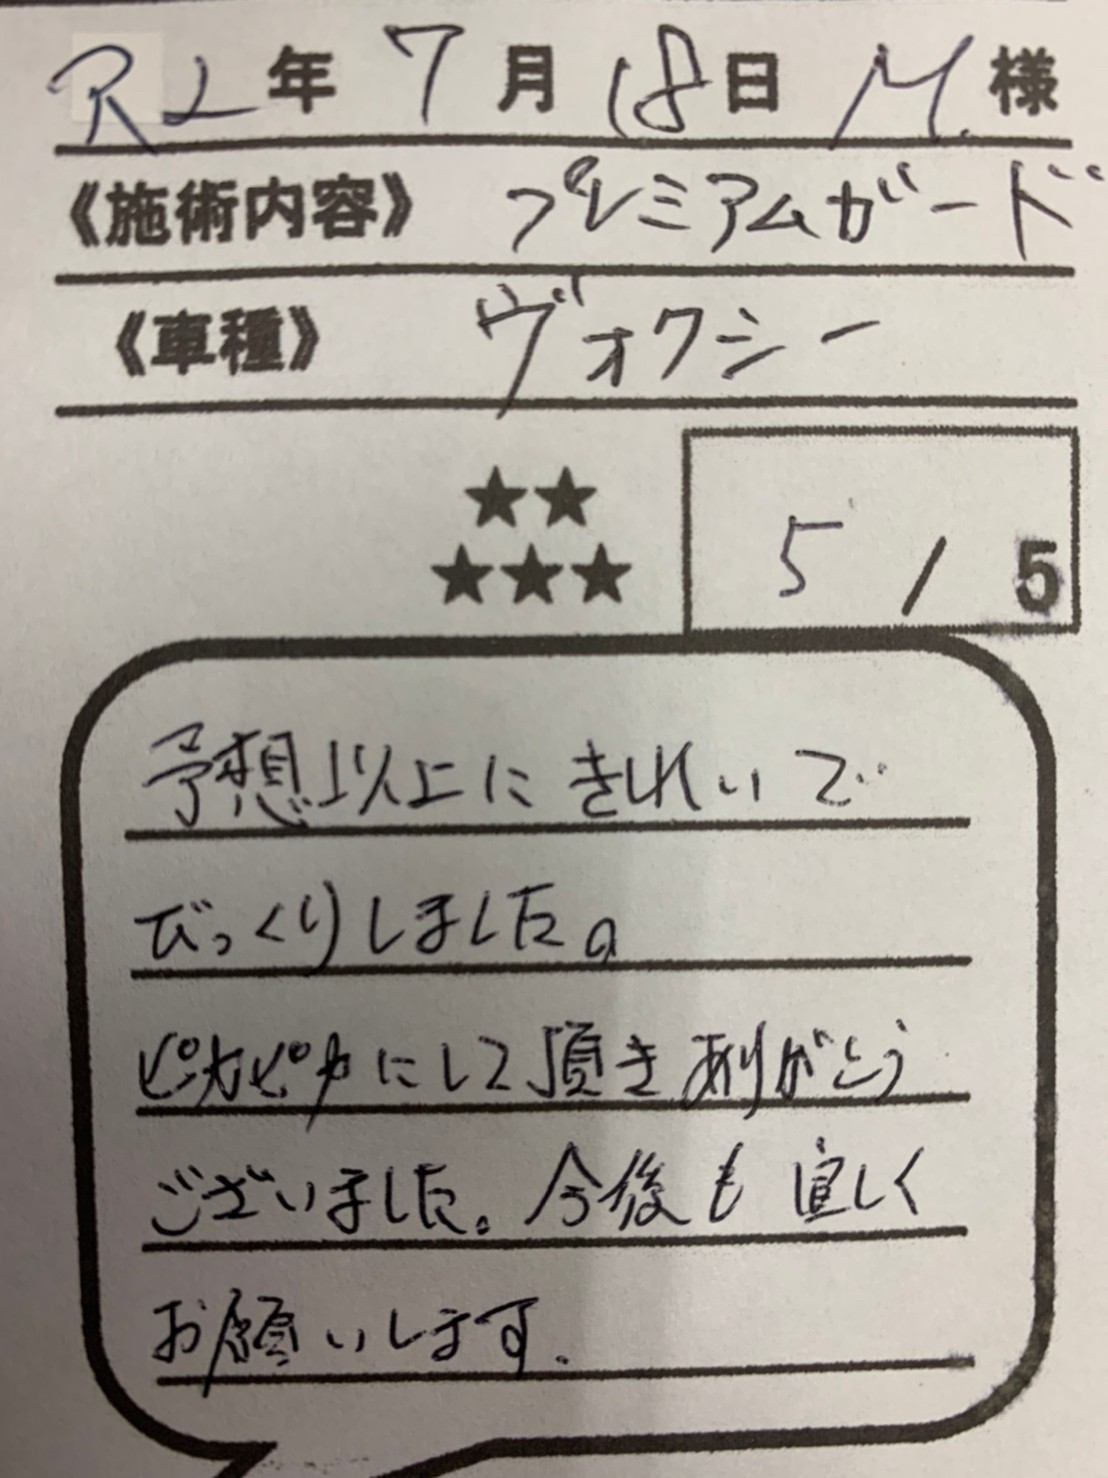 R2年7月18日 M.様
《施術内容》 プレミアムガード
《車種》 ヴォクシー
★★
★★★
5/5
予想以上にきれいで
びっくりしました。
ピカピカにして頂きありがとう
ございました。今後も宜しく
お願いします。